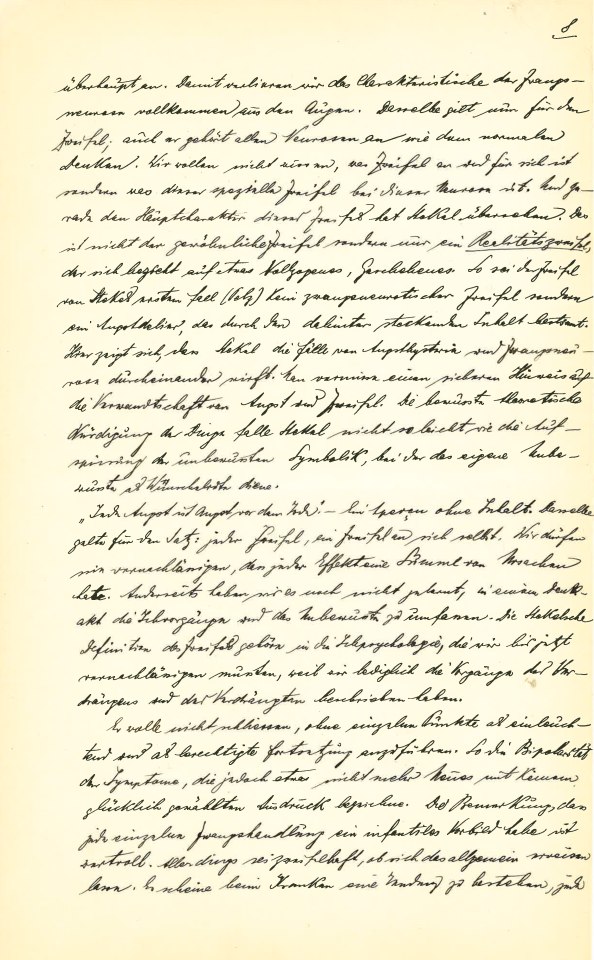 8
überhaupt an. Damit verlieren wir das Charakteristische der Zwangs-
neurose vollkommen aus den Augen. Dasselbe gilt nun für den
Zweifel; auch er gehört allen Neurosen an wie dem normalen
Denken. Wir wollen nicht wissen, was Zweifel an und für sich ist
sondern was dieser spezielle Zweifel bei dieser Neurose ist. Und ge-
rade den Hauptcharakter dieses Zweifels hat Stekel übersehen. Das
ist nicht der gewöhnliche Zweifel sondern nur ein Realitätszweifel,
der sich bezieht auf etwas Vollzogenes, Geschehenes. So sei der Zweifel
von Stekels erstem Fall (Volz) kein zwangsneurotischer Zweifel sondern
ein Angstdelier, das durch den dahinter steckenden Inhalt
Hier zeigt sich, dass Stekel die Fälle von Angsthysterie und Zwangsneu-
rose durcheinander wirft. Man vermisse einen sicheren Hinweis auf
die Verwandtschaft von Angst und Zweifel. Die bewusste theoretische
Würdigung der Dinge falle Stekel nicht so leicht wie die Auf-
spürung der unbewussten Symbolik, bei der das eigene Unbe-
wusste als Wünschelrute diene.
„Jede Angst ist Angst vor dem Tode". – Ein Aperçu ohne Inhalt. Dasselbe
gelte für den Satz: jeder Zweifel, ein Zweifel an sich selbst. Wir dürfen
nie vernachlässigen, dass jeder Effekt eine Summe von Ursachen
hate. Anderseits haben wir es noch nicht gelernt, in einem Denk-
akt die Ichvorgänge und das Unbewusste zu umfassen. Die Stekelsche
Definition des Zweifels gehöre in die Ichpsychologie, die wir bis jetzt
vernachlässigen mussten, weil wir lediglich die Vorgänge des Ver-
drängens und des Verdrängten beschrieben haben.
Er wolle nicht schliessen, ohne einzelne Punkte als einleuch-
tend und als berechtigte Fortsetzung anzuführen. So die Bipolarität
der Symptome, die jedoch etwas nicht mehr Neues mit keinem
glücklich gewählten Ausdruck bezeichne. Die Bemerkung, dass
jede einzelne Zwangshandlung ein infantiles Vorbild habe ist
wertvoll. Allerdings sei zweifelhaft, ob sich das allgemein erweisen
lasse. Es scheine beim Kranken eine Tendenz zu bestehen, jede